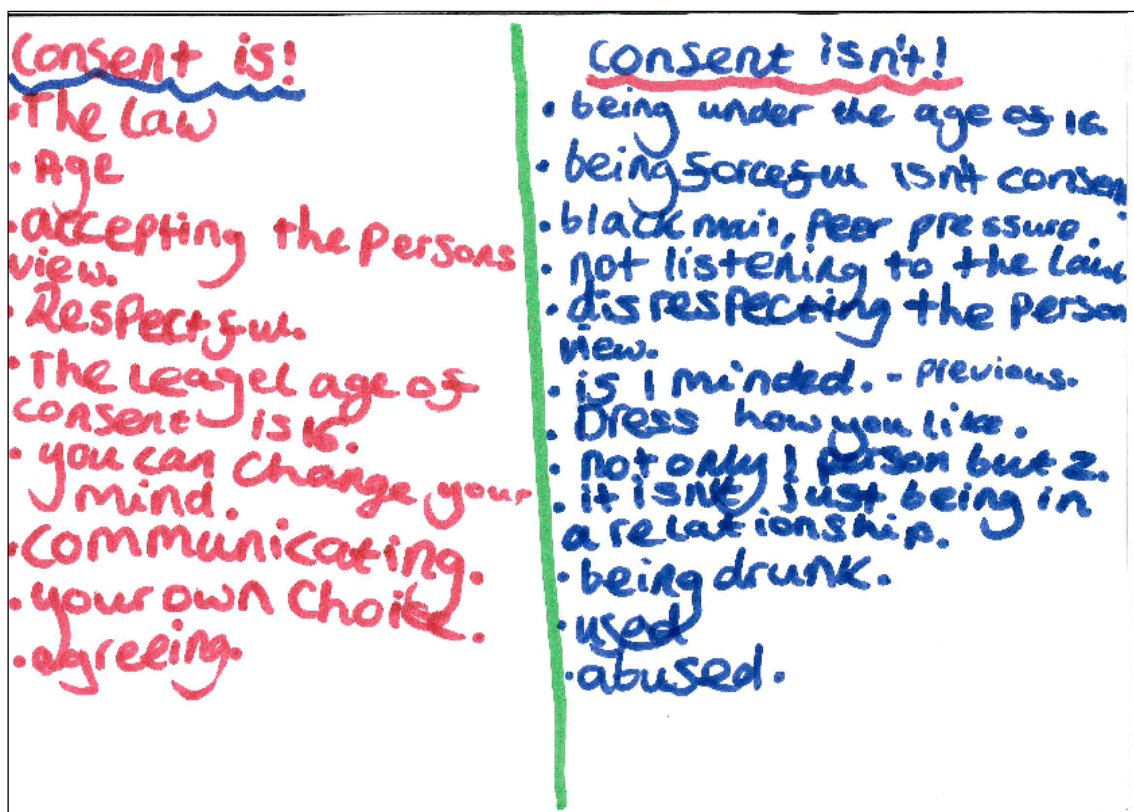 Consent is!
• The Law
• Age
• accepting the persons
view.
• Respectful.
• The Leagel age of
consent is 16.
• you can change your
mind.
• communicating.
• your own choice.
• agreeing.
consent isn't!
• being under the age of 16
• being forceful isn't consen
• blackmail, Peer pressure.
• not listening to the law
• disrespecting the person
view.
• is 1 minded. - previous.
• Dress how you like.
• not only 1 person but 2.
• it isn't just being in
a relationship.
• being drunk.
• used
• abused.